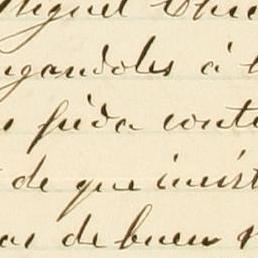 Miguel
gandoles á l
pida conte
de que insist
as de buen